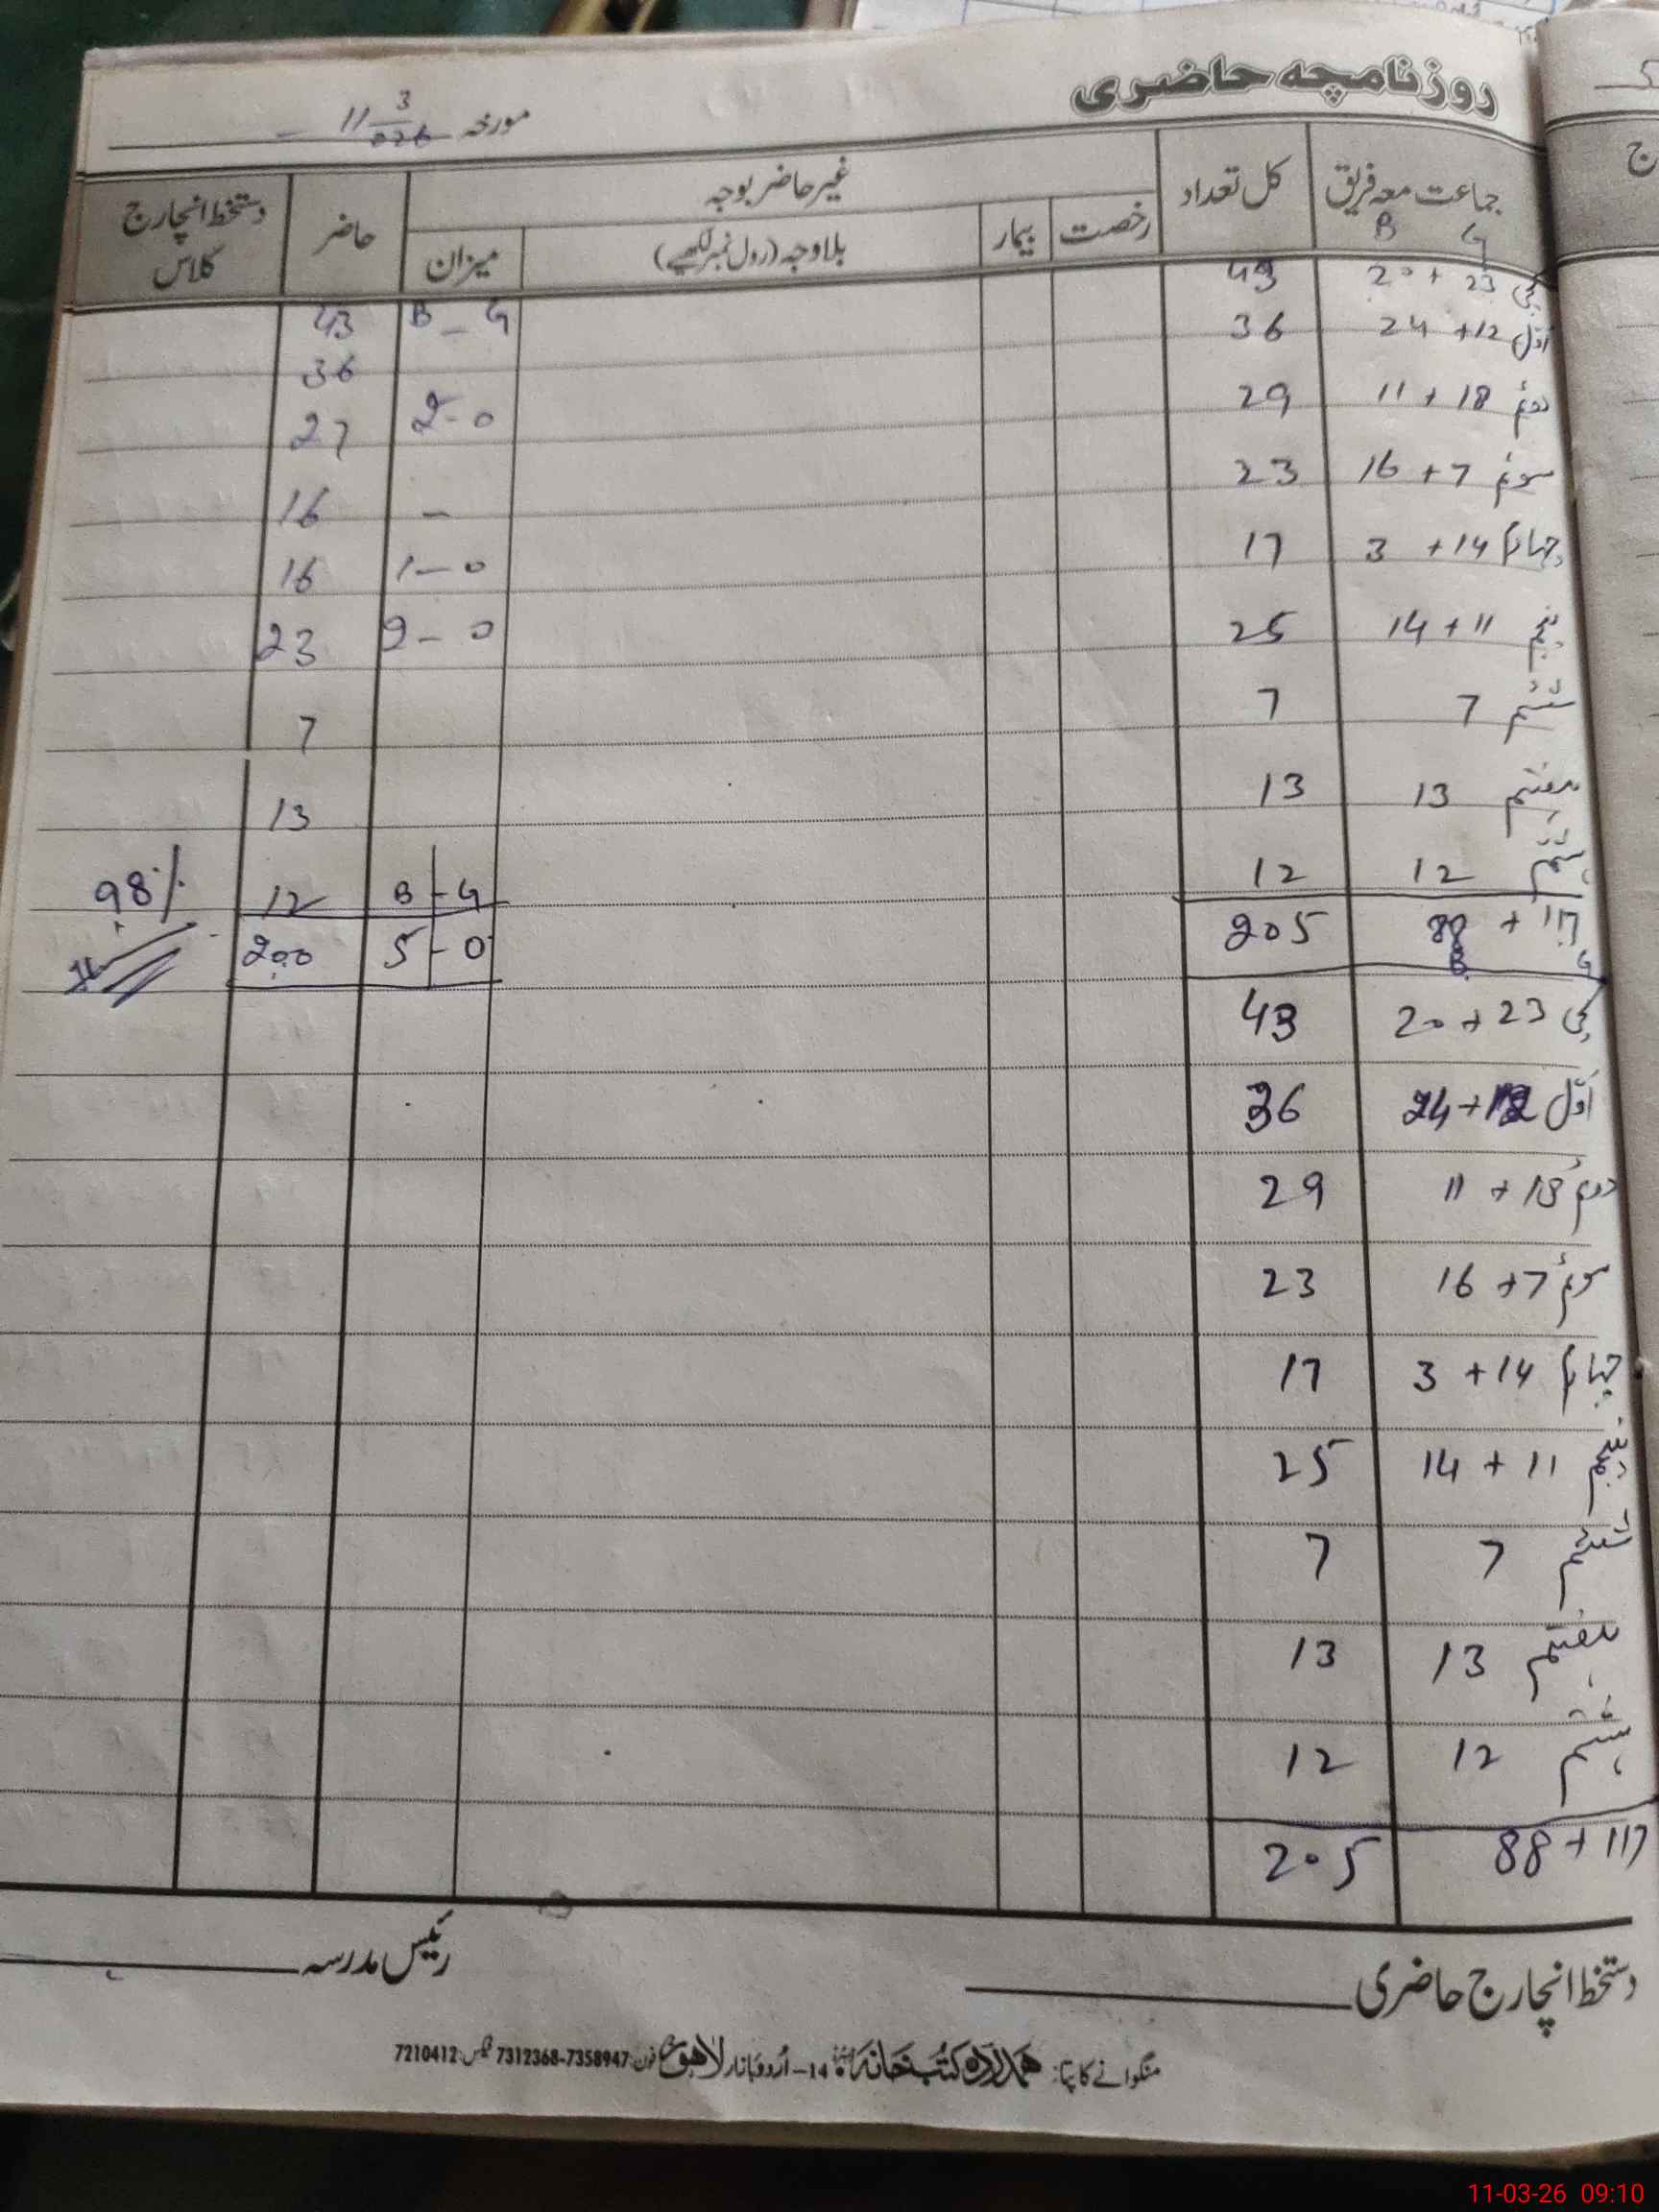 روزنامچہ حاضری
مورخہ 11 3/026
جماعت معہ فریق B G کل تعداد غیر حاضر بوجہ حاضر دستخط انچارج کلاس
رخصت بیمار بلاوجہ (رول نمبر لکھیے) میزان
کچی 20 + 23 43 B - G 43
اوّل 24 + 12 36 36
دوئم 11 + 18 29 2-0 27
سوئم 16 + 7 23 - 16
چہارم 3 + 14 17 1-0 16
پنجم 14 + 11 25 2-0 23
ششم 7 7 7
ہفتم 13 13 13
ہشتم 12 12 B - G 12 98%
88 + 117 205 5 - 0 200
B G
کچی 20 + 23 43
اوّل 24 + 12 36
دوئم 11 + 18 29
سوئم 16 + 7 23
چہارم 3 + 14 17
پنجم 14 + 11 25
ششم 7 7
ہفتم 13 13
ہشتم 12 12
88 + 117 205
دستخط انچارج حاضری رئیس مدرسہ
منگوانے کا پتہ: ہمدرد کتب خانہ 14- اُردو بازار لاہور فون: 7312368-7358947 فیکس: 7210412
11-03-26 09:10